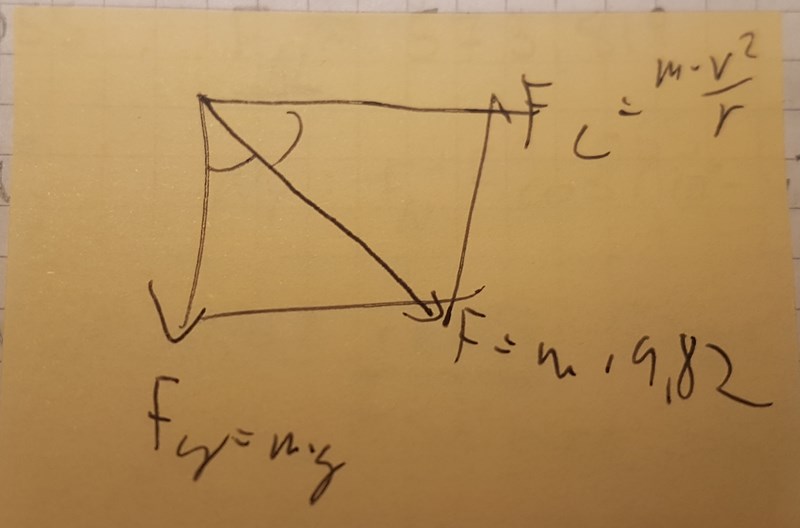 F_c = m·v²/r
F = m · 9,82
F_g = m·g